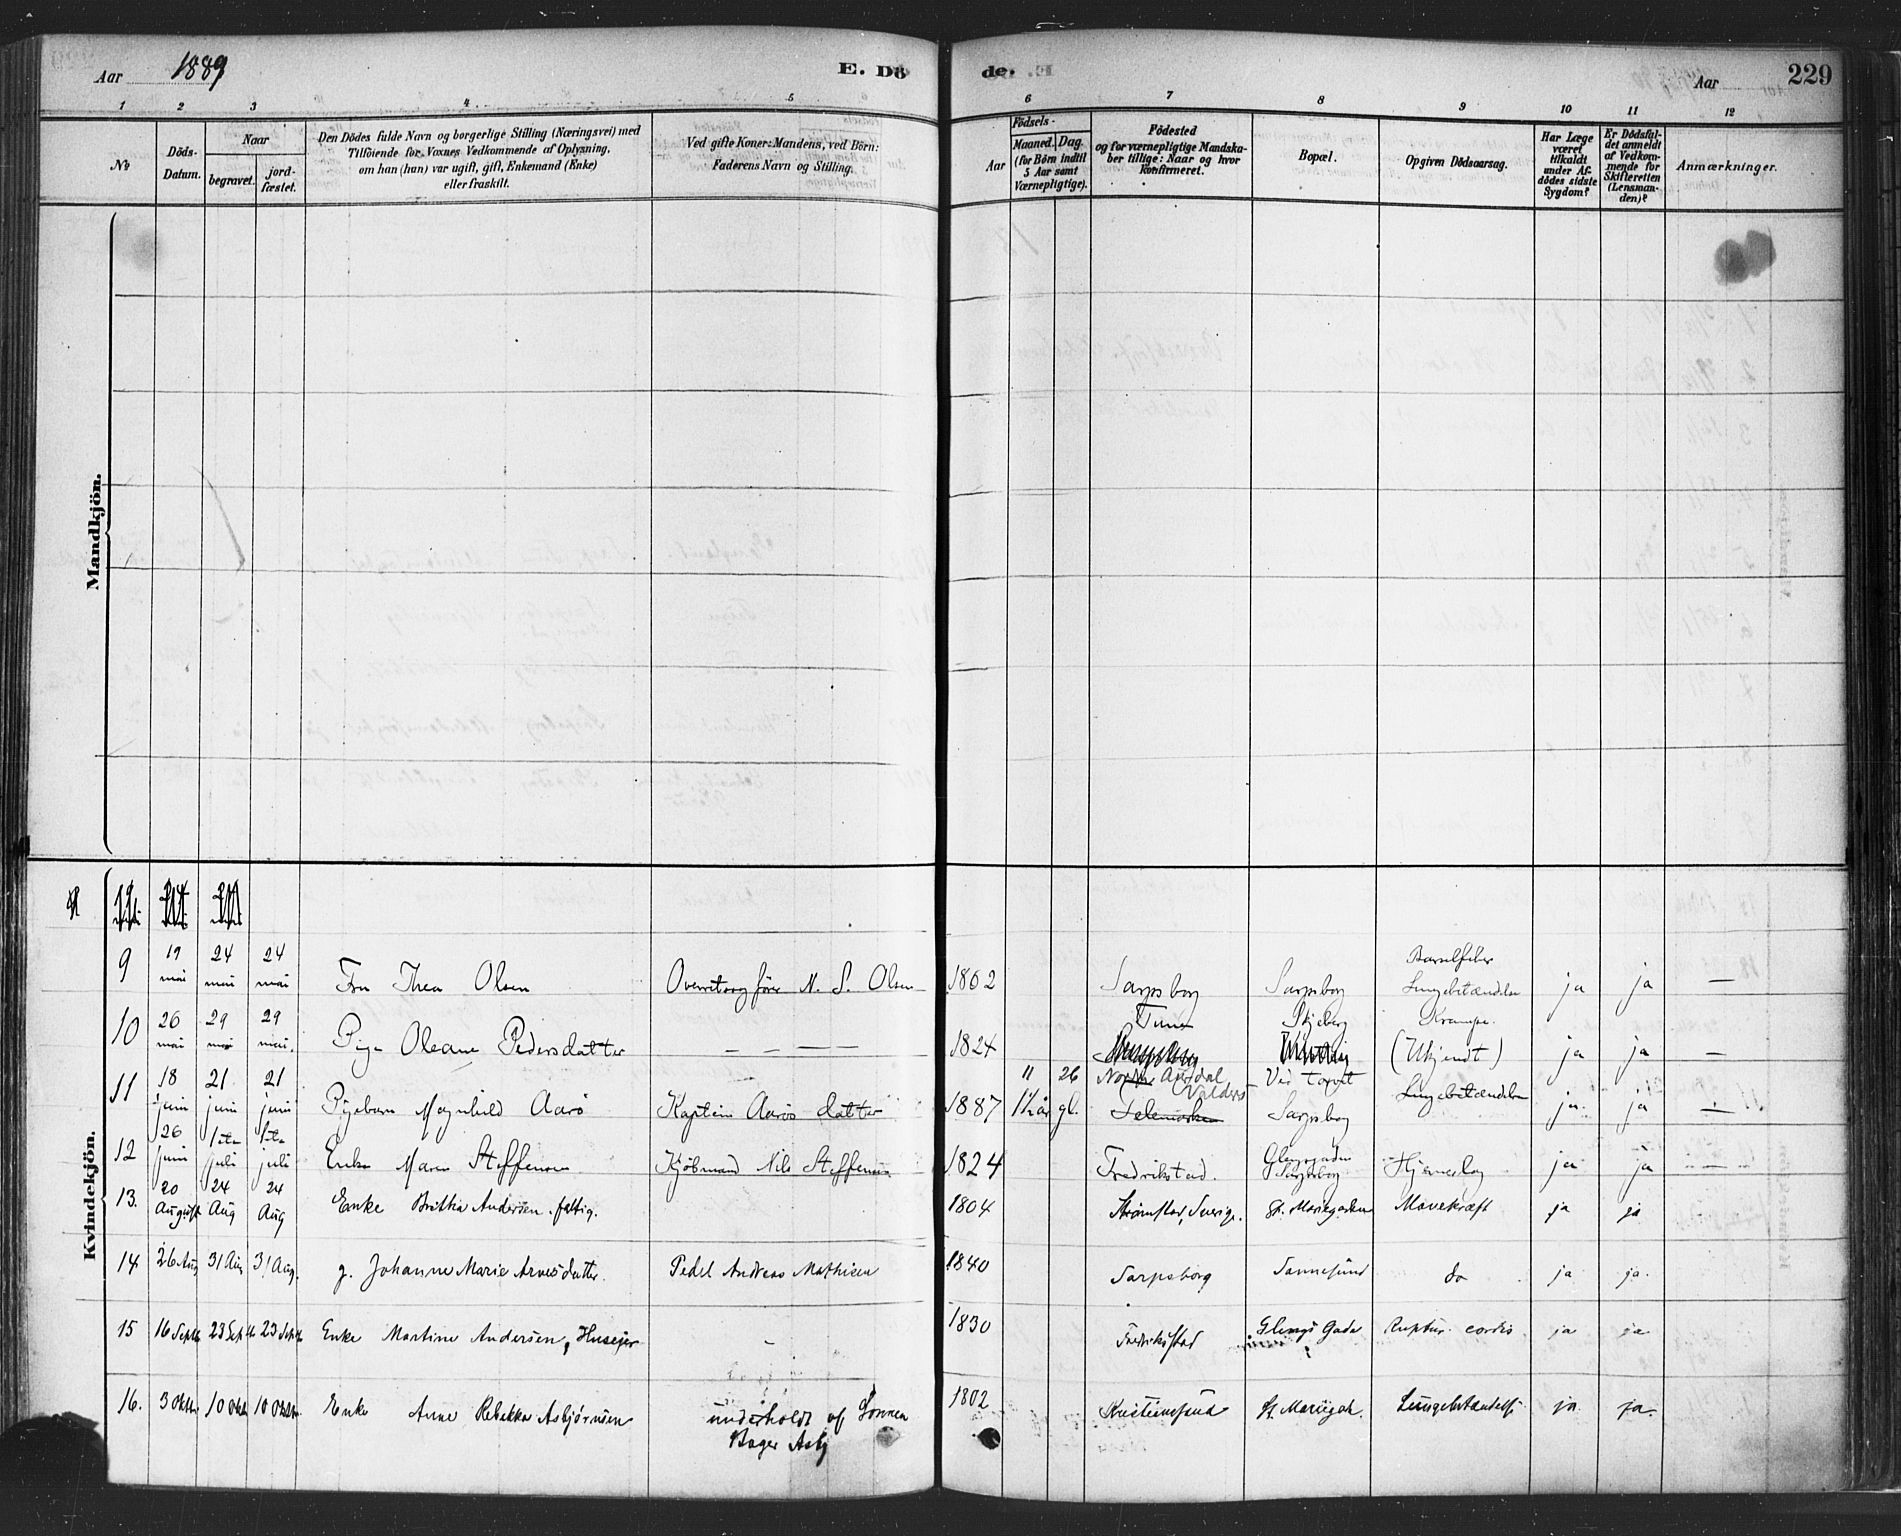 Aar 1889 E. Dö
de. Aar 229
1 2 3 4 5 6 7 8 9 10 11 12
No
Döds-
Datum.
Naar
begravet.
jord-
fæstet.
Den Dödes fulde Navn og borgerlige Stilling (Næringsvei) med
Tilföiende for Voxnes Vedkommende af Oplysning,
om han (hun) var ugift, gift, Enkemand (Enke)
eller fraskilt.
Ved gifte Koner: Mandens, ved Börn:
Faderens Navn og Stilling.
Födsels-
Aar
Maaned. Dag.
(for Börn indtil
5 Aar samt
Værnepligtige).
Födested
og for værnepligtige Mandska-
ber tillige: Naar og hvor
konfirmeret.
Bopæl.
Opgiven Dödsaarsag.
Har Læge
været
tilkaldt
under Af-
dödes sidste
Sygdom?
Er Dödsfal-
det anmeldt
af Vedkom-
mende for
Skifteretten
(Lensman-
den)?
Anmærkninger.
Mandkjön.
Kvindekjön.
9 19 mai 24 mai 24 mai Fru Thea Olsen N. S. Olsen 1862 Sarpsborg Sarpsborg Barselfeber Lungebetændelse ja ja —
10 26 mai 29 mai 29 mai. Pige Oleane Pedersdatter — — — — 1824 Tune Skjeberg Krampe. (Ukjendt) ja ja —
11 18 juni 21 juni 21 juni Pigebarn Magnhild Aarö Kaptein Aarös datter 1887 11 26 1½ år gl. Nordre Aurdal Valders Telemarken Ved torvet Sarpsborg Lungebetændelse ja ja —
12 26 juni 1ste juli 1ste juli Enke Maren Steffensen Kjöbmand Nils Steffensen 1824 Fredrikstad. Glengsgaden Sarpsborg Hjerneslag ja ja —
13. 20 August 24 Aug 24 Aug Enke Britha Andersen. fattig. 1804 Strömstad, Sverige. St. Mariegaden Mavekræft ja ja
14 26 Aug 31 Aug 31 Aug. g. Johanne Marie Arnesdatter. Pedel Andreas Mathisen 1840 Sarpsborg Sannesund do ja ja.
15 16 Septb 23 Septb 23 Septb Enke Martine Andersen, Huseier — 1830 Fredriksstad Glengs Gade Ruptur. cordis. ja ja
16. 3 Oktbr 10 Oktb 10 Oktbr Enke Anne Rebekka Asbjörnsen underholdt af Sønnen 1802 Kristiansund St. Mariegad. ja ja.
Bager Asbj